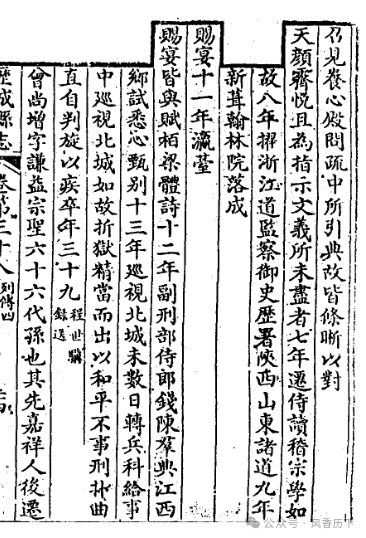 召見養心殿問疏中所引典故皆條晰以對
天顔霽悅且為指示文義所未盡者七年遷侍讀稽宗學如
故八年擢浙江道監察御史歷署陝西山東諸道九年
新葺翰林院落成
賜宴十一年瀛臺
賜宴皆與賦栢梁體詩十二年副刑部侍郎錢陳羣典江西
鄉試悉心甄别十三年巡視北城未數日轉兵科給事
中巡視北城如故折獄精當而出以和平不事刑扑曲
直自判旋以疾卒年三十九程世驥錄送
曾尚增字謙益宗聖六十六代孫也其先嘉祥人後遷
歷城縣志 卷第三十八 列傳四
公众号·风香历下